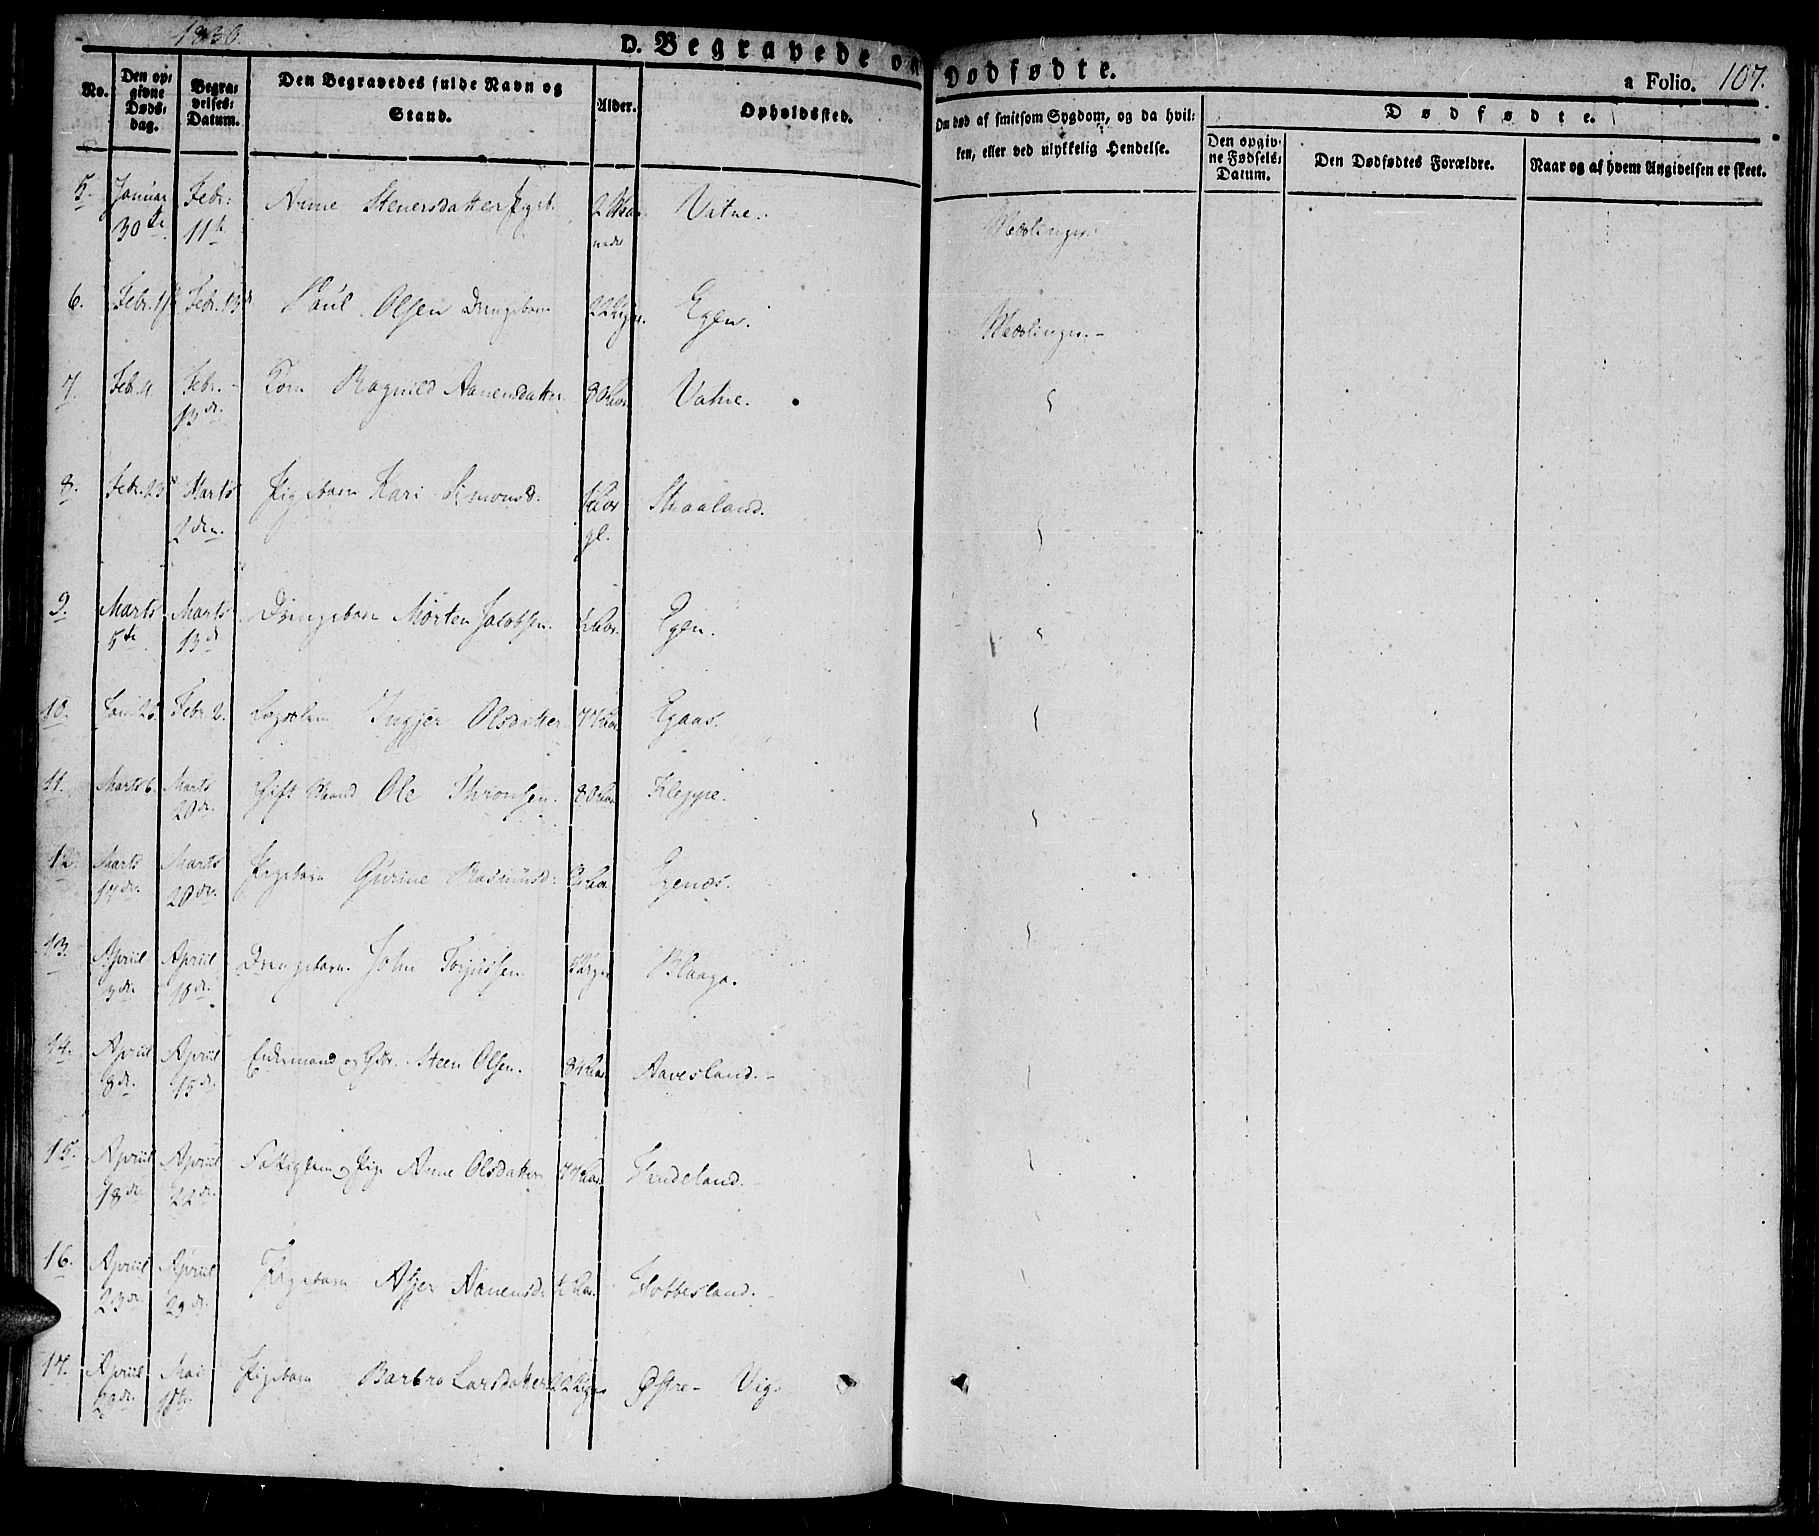 1830.
D. Begravede og Dødfødte.
a Folio. 107.
No.
Den opgivne Dødsdag.
Begravelses-Datum.
Den Begravedes fulde Navn og Stand.
Alder.
Opholdssted.
Om død af smitsom Sygdom, og da hvilken, eller ved ulykkelig Hendelse.
Dødfødte.
Den opgivne Fødsels-Datum.
Den Dødfødtes Forældre.
Naar og af hvem Angivelsen er skeet.
5. Januar 30te Febr: 11te Anne Stenersdatter Pigeb. 2 Maaneder Vatne. Mæslinger.
6. Febr. Febr. 13d. Paul Olsen Drengebarn 22 Uger. Egen. Mæslinger.
7. Febr. 4. Febr. 13de. Kone Ragnild Aanensdatter 80 Aar Vatne.
8. Febr. 23 Marts 2den. Pigebarn Kari Simonsd: 1 Aar gl. Skaaland.
9. Marts 5te Marts 13d Drengebarn Morten Jacobsen. Aar. Egen.
10. Jan. 26. Febr. 2. Ingjer Olsdatter 77 Aar Egaas.
11. Marts 6. Marts 20de. Gift Mand Ole Thronsen. 80 Aar Kleppe.
12. Marts 17de. Marts 20de. Pigebarn Gurine Rasmusd: Aar. Egenæs.
13. Apriil 3de. Apriil 10de. Drengebarn John Torjussen Uger Blaaga.
14. Apriil 8de. Apriil 15de. Enkemand og Gbr. Steen Olsen. 84 Aar Aavesland.
15. Apriil 18de. Apriil 22de. Fattiglem og Pige Anne Olsdatter 77 Aar. Handeland.
16. Apriil 23de. Apriil 29de. Pigebarn Asjer Aanensd. Aar. Hobbesland.
17. Apriil 20de. Mai 1ste. Pigebarn Barbro Larsdatter 22 Uger Østre Vig.